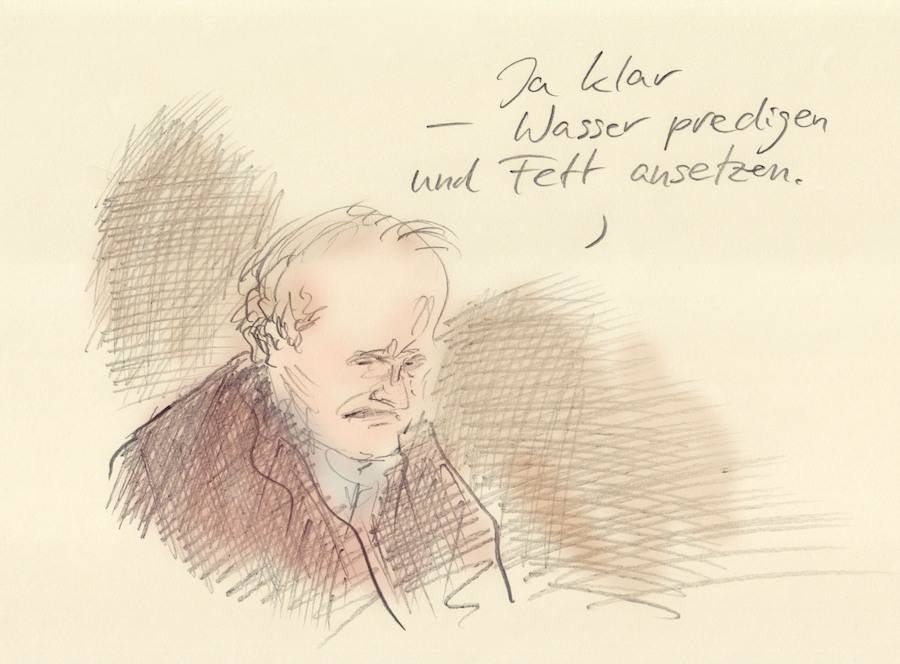 Ja klar
– Wasser predigen
und Fett ansetzen.